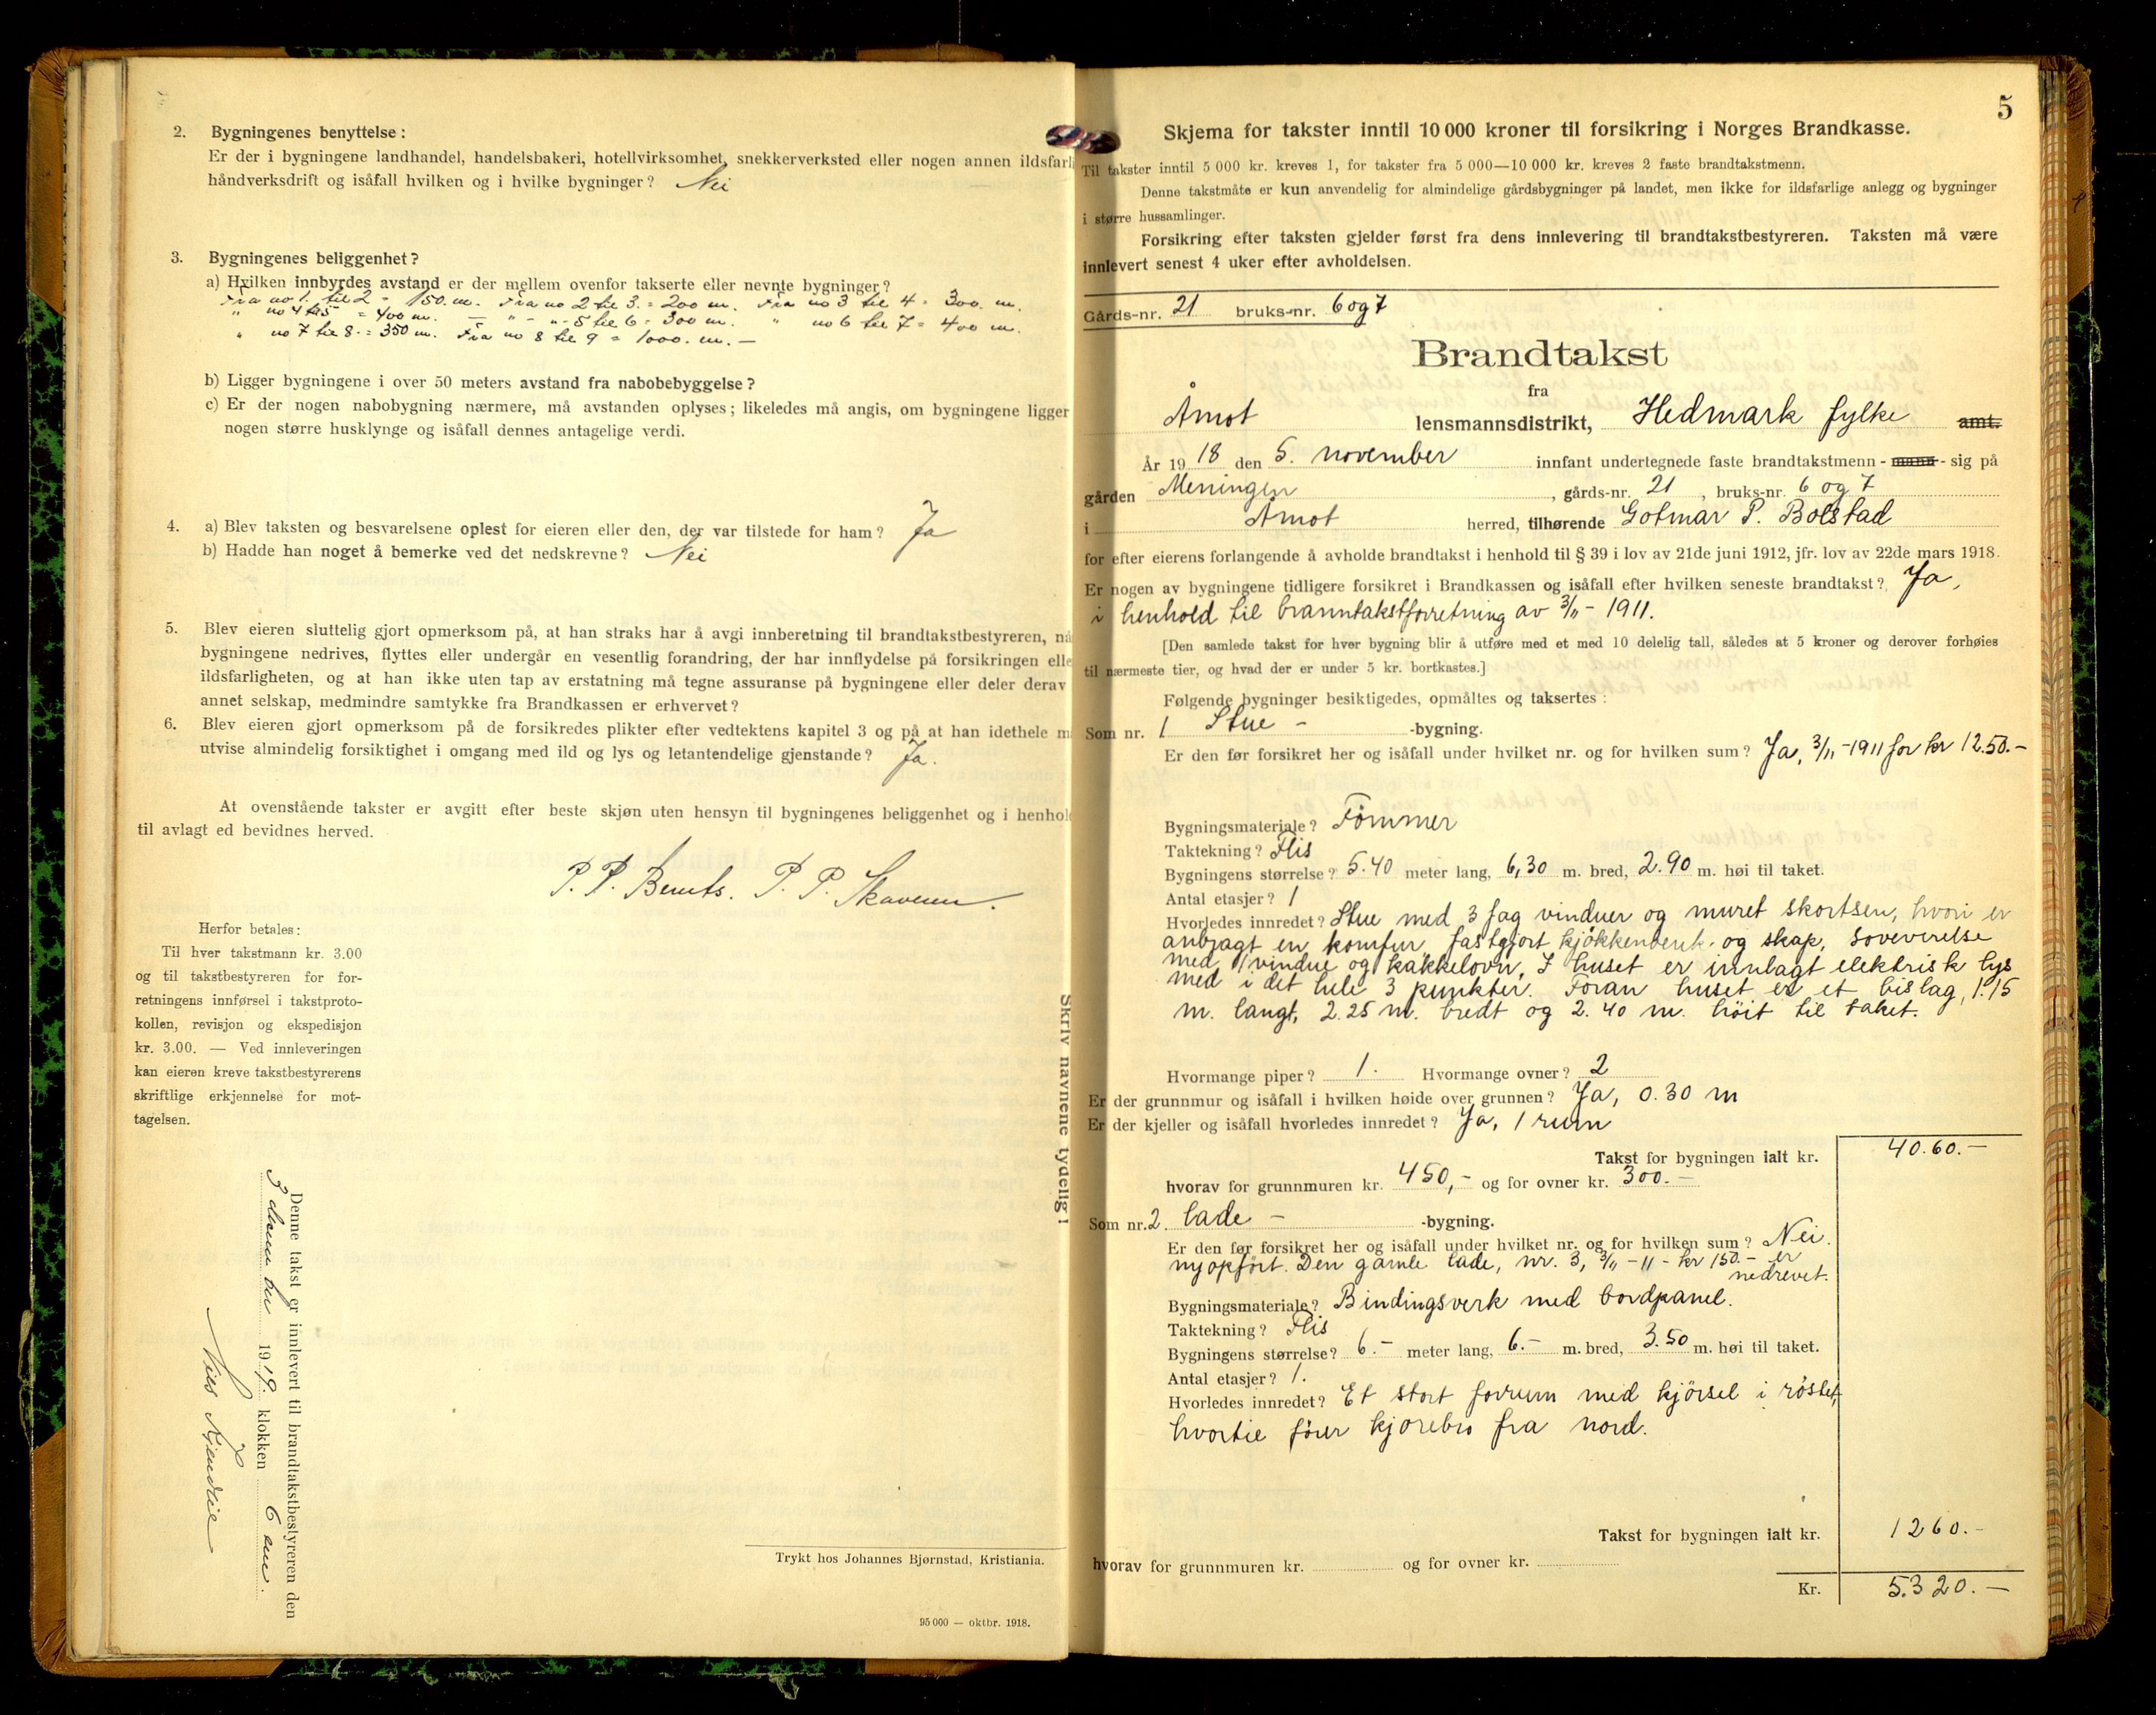 2. Bygningenes benyttelse:
Er der i bygningene landhandel, handelsbakeri, hotellvirksomhet, snekkerverksted eller nogen annen ildsfarli
håndverksdrift og isåfall hvilken og i hvilke bygninger? Nei
3. Bygningenes beliggenhet?
a) Hvilken innbyrdes avstand er der mellem ovenfor takserte eller nevnte bygninger?
Fra no 1 til 2 = 150. m. Fra no 2 til 3. = 200 m. Fra no 3 til 4 = 300. m.
" no 4 til 5 = 400 m. — " - " - 5 til 6 = 300 m. " no 6 til 7 = 400 m.
" no 7 til 8 = 350 m. Fra no 8 til 9 = 1000. m. —
b) Ligger bygningene i over 50 meters avstand fra nabobebyggelse?
c) Er der nogen nabobygning nærmere, må avstanden oplyses; likeledes må angis, om bygningene ligger
nogen større husklynge og isåfall dennes antagelige verdi.
4. a) Blev taksten og besvarelsene oplest for eieren eller den, der var tilstede for ham? Ja
b) Hadde han noget å bemerke ved det nedskrevne? Nei
5. Blev eieren sluttelig gjort opmerksom på, at han straks har å avgi innberetning til brandtakstbestyreren, nå
bygningene nedrives, flyttes eller undergår en vesentlig forandring, der har innflydelse på forsikringen elle
ildsfarligheten, og at han ikke uten tap av erstatning må tegne assuranse på bygningene eller deler derav
annet selskap, medmindre samtykke fra Brandkassen er erhvervet?
6. Blev eieren gjort opmerksom på de forsikredes plikter efter vedtektens kapitel 3 og på at han idethele m
utvise almindelig forsiktighet i omgang med ild og lys og letantendelige gjenstande? Ja.
At ovenstående takster er avgitt efter beste skjøn uten hensyn til bygningenes beliggenhet og i henhol
til avlagt ed bevidnes herved.
P. P. P. P. Skavern.
Herfor betales:
Til hver takstmann kr. 3.00
og til takstbestyreren for for-
retningens innførsel i takstproto-
kollen, revisjon og ekspedisjon
kr. 3.00. — Ved innleveringen
kan eieren kreve takstbestyrerens
skriftlige erkjennelse for mot-
tagelsen.
Skriv navnene tydelig!
Denne takst er innlevert til brandtakstbestyreren den
3 desember 1919. klokken 6 em.
Nils
Trykt hos Johannes Bjørnstad, Kristiania.
95 000 — oktbr. 1918.
5
Skjema for takster inntil 10 000 kroner til forsikring i Norges Brandkasse.
Til takster inntil 5 000 kr. kreves 1, for takster fra 5 000—10 000 kr. kreves 2 faste brandtakstmenn.
Denne takstmåte er kun anvendelig for almindelige gårdsbygninger på landet, men ikke for ildsfarlige anlegg og bygninger
i større hussamlinger.
Forsikring efter taksten gjelder først fra dens innlevering til brandtakstbestyreren. Taksten må være
innlevert senest 4 uker efter avholdelsen.
Gårds-nr. 21 bruks-nr. 6 og 7
Brandtakst
fra
Åmot lensmannsdistrikt, Hedmark fylke amt.
År 1918 den 5. november innfant undertegnede faste brandtakstmenn - mann - sig på
gården Menningen, gårds-nr. 21, bruks-nr. 6 og 7
i Åmot herred, tilhørende Gotmar P. Bolstad
for efter eierens forlangende å avholde brandtakst i henhold til § 39 i lov av 21de juni 1912, jfr. lov av 22de mars 1918.
Er nogen av bygningene tidligere forsikret i Brandkassen og isåfall efter hvilken seneste brandtakst? Ja,
i henhold til branntakstforretning av 3/11 - 1911.
[Den samlede takst for hver bygning blir å utføre med et med 10 delelig tall, således at 5 kroner og derover forhøies
til nærmeste tier, og hvad der er under 5 kr. bortkastes.]
Følgende bygninger besiktigedes, opmåltes og taksertes:
Som nr. 1 Stue - -bygning.
Er den før forsikret her og isåfall under hvilket nr. og for hvilken sum? Ja, 3/11 - 1911 for kr 12.50.-
Bygningsmateriale? Tömmer
Taktekning? Flis
Bygningens størrelse? 5.40 meter lang, 6,30 m. bred, 2.90 m. høi til taket.
Antal etasjer? 1
Hvorledes innredet? Stue med 3 fag vinduer og muret skorsten, hvori er
anbragt en komfur, fastgjort kjøkkenbenk og skap, soveverelse
med 1 vindue og kakkelovn, I huset er innlagt elektrisk lys
med i det hele 3 punkter. Foran huset er et bislag, 1.15
m. langt, 2.25 m. bredt og 2.40 m. höit til taket.
Hvormange piper? 1. Hvormange ovner? 2
Er der grunnmur og isåfall i hvilken høide over grunnen? Ja, 0.30 m
Er der kjeller og isåfall hvorledes innredet? Ja, 1 rum
Takst for bygningen ialt kr. 40.60.—
hvorav for grunnmuren kr. 450,- og for ovner kr. 300.—
Som nr. 2. Lade - -bygning.
Er den før forsikret her og isåfall under hvilket nr. og for hvilken sum? Nei.
nyopført. Den gamle lade, nr. 3, 3/11 - 11 - kr 150.- er
nedrevet.
Bygningsmateriale? Bindingsverk med bordpanel.
Taktekning? Flis
Bygningens størrelse? 6.- meter lang, 6.- m. bred, 3.50 m. høi til taket.
Antal etasjer? 1.
Hvorledes innredet? Et stort forrum med kjörsel i röstet,
hvortil förer kjörebro fra nord.
Takst for bygningen ialt kr. 1260.-
hvorav for grunnmuren kr. og for ovner kr.
Kr. 5.320.—